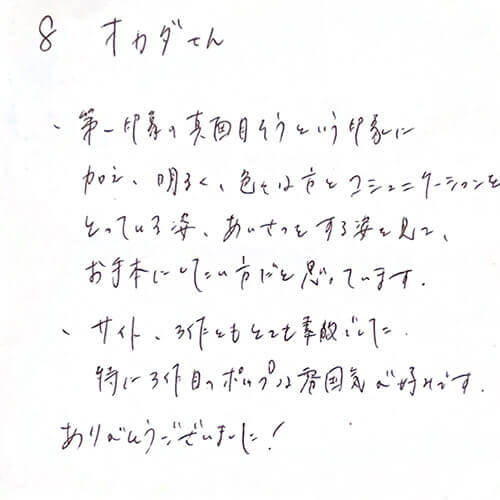 8 オカダさん
・第一印象の真面目そうという印象に
加え、明るく、色々な方とコミュニケーションを
とっている姿、あいさつをする姿を見て、
お手本にしたい方だと思っています。
・サイト、3作ともとても素敵でした.
特に3作目のポップな雰囲気が好みです.
ありがとうございました!